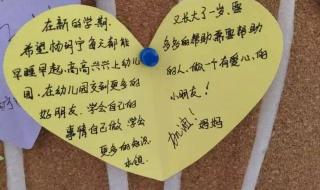 在新的学期,
希望杨明宁每天都能
早睡早起,高高兴兴上幼儿
园,在幼儿园交到更多的
好朋友,学会自己的
事情自己做,学会
更多的知识
本领
又长大了一岁,要
多多的帮助需要帮助
的人,做一个有爱心的
小朋友!
加油!
妈妈